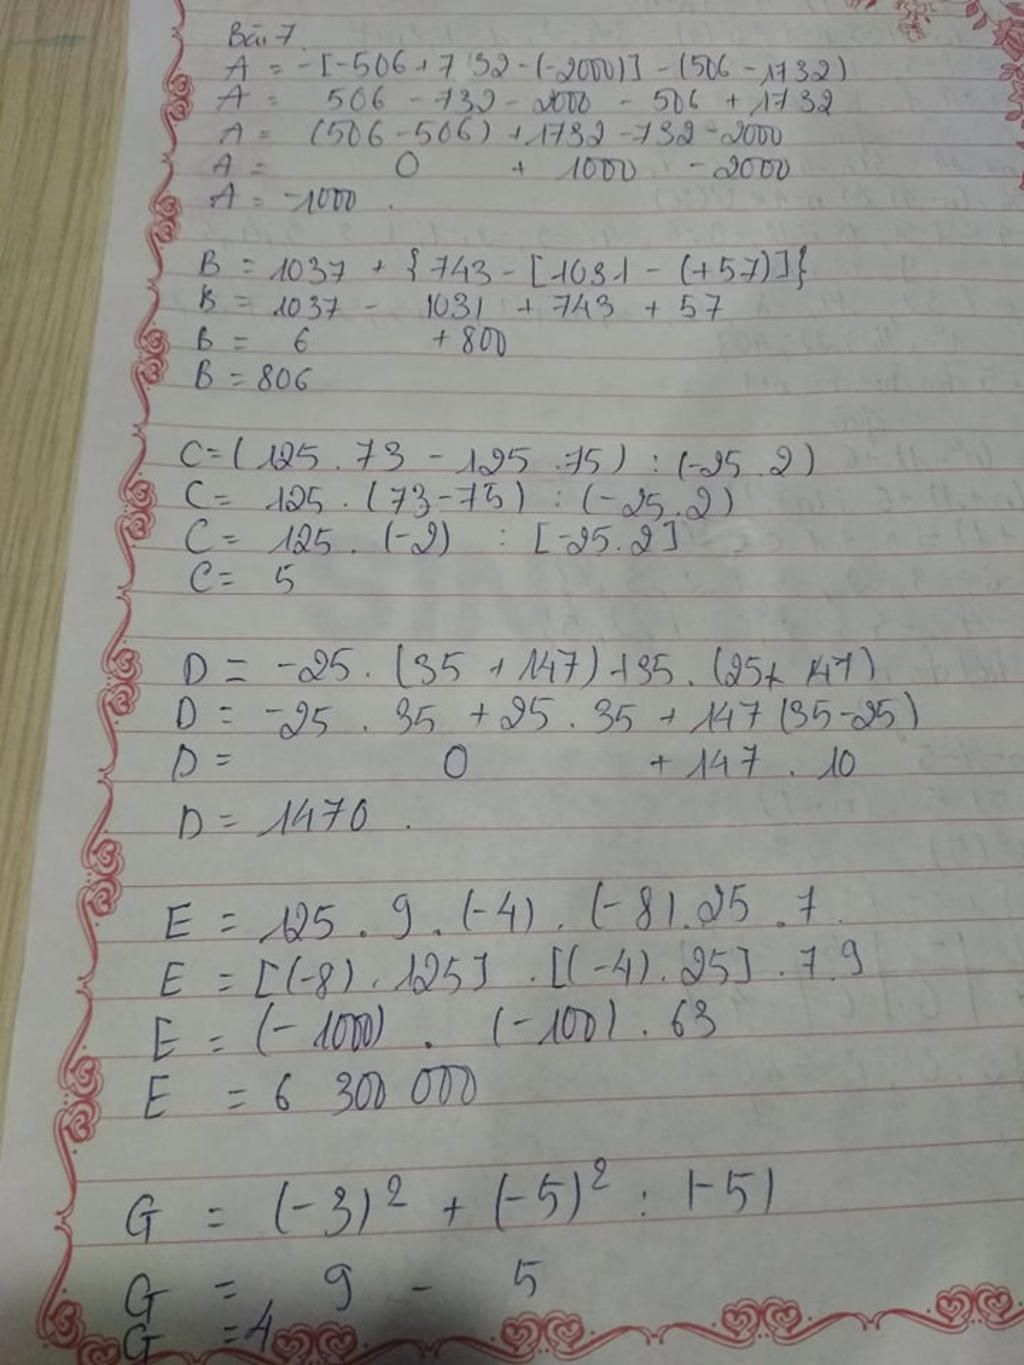 Bài 7.
A = -[-506 + 732 - (-2000)] - (506 - 1732)
A = 506 - 732 - 2000 - 506 + 1732
A = (506 - 506) + 1732 - 732 - 2000
A = 0 + 1000 - 2000
A = -1000.
B = 1037 + {743 - [1031 - (+57)]}
B = 1037 - 1031 + 743 + 57
B = 6 + 800
B = 806
C = (125 . 73 - 125 . 75) : (-25 . 2)
C = 125 . (73 - 75) : (-25 . 2)
C = 125 . (-2) : [-25 . 2]
C = 5
D = -25 . (35 + 147) + 35 . (25 + 147)
D = -25 . 35 + 25 . 35 + 147 (35 - 25)
D = 0 + 147 . 10
D = 1470.
E = 125 . 9 . (-4) . (-8) . 25 . 7
E = [(-8) . 125] . [(-4) . 25] . 7 . 9
E = (-1000) . (-100) . 63
E = 6 300 000
G = (-3)² + (-5)² : |-5|
G = 9 - 5
G = 4